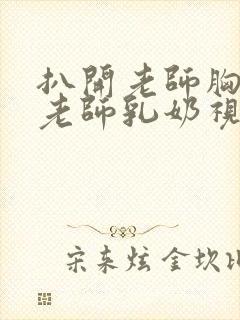 扒開老師胸
老師乳奶視
宋來炫 金坎比